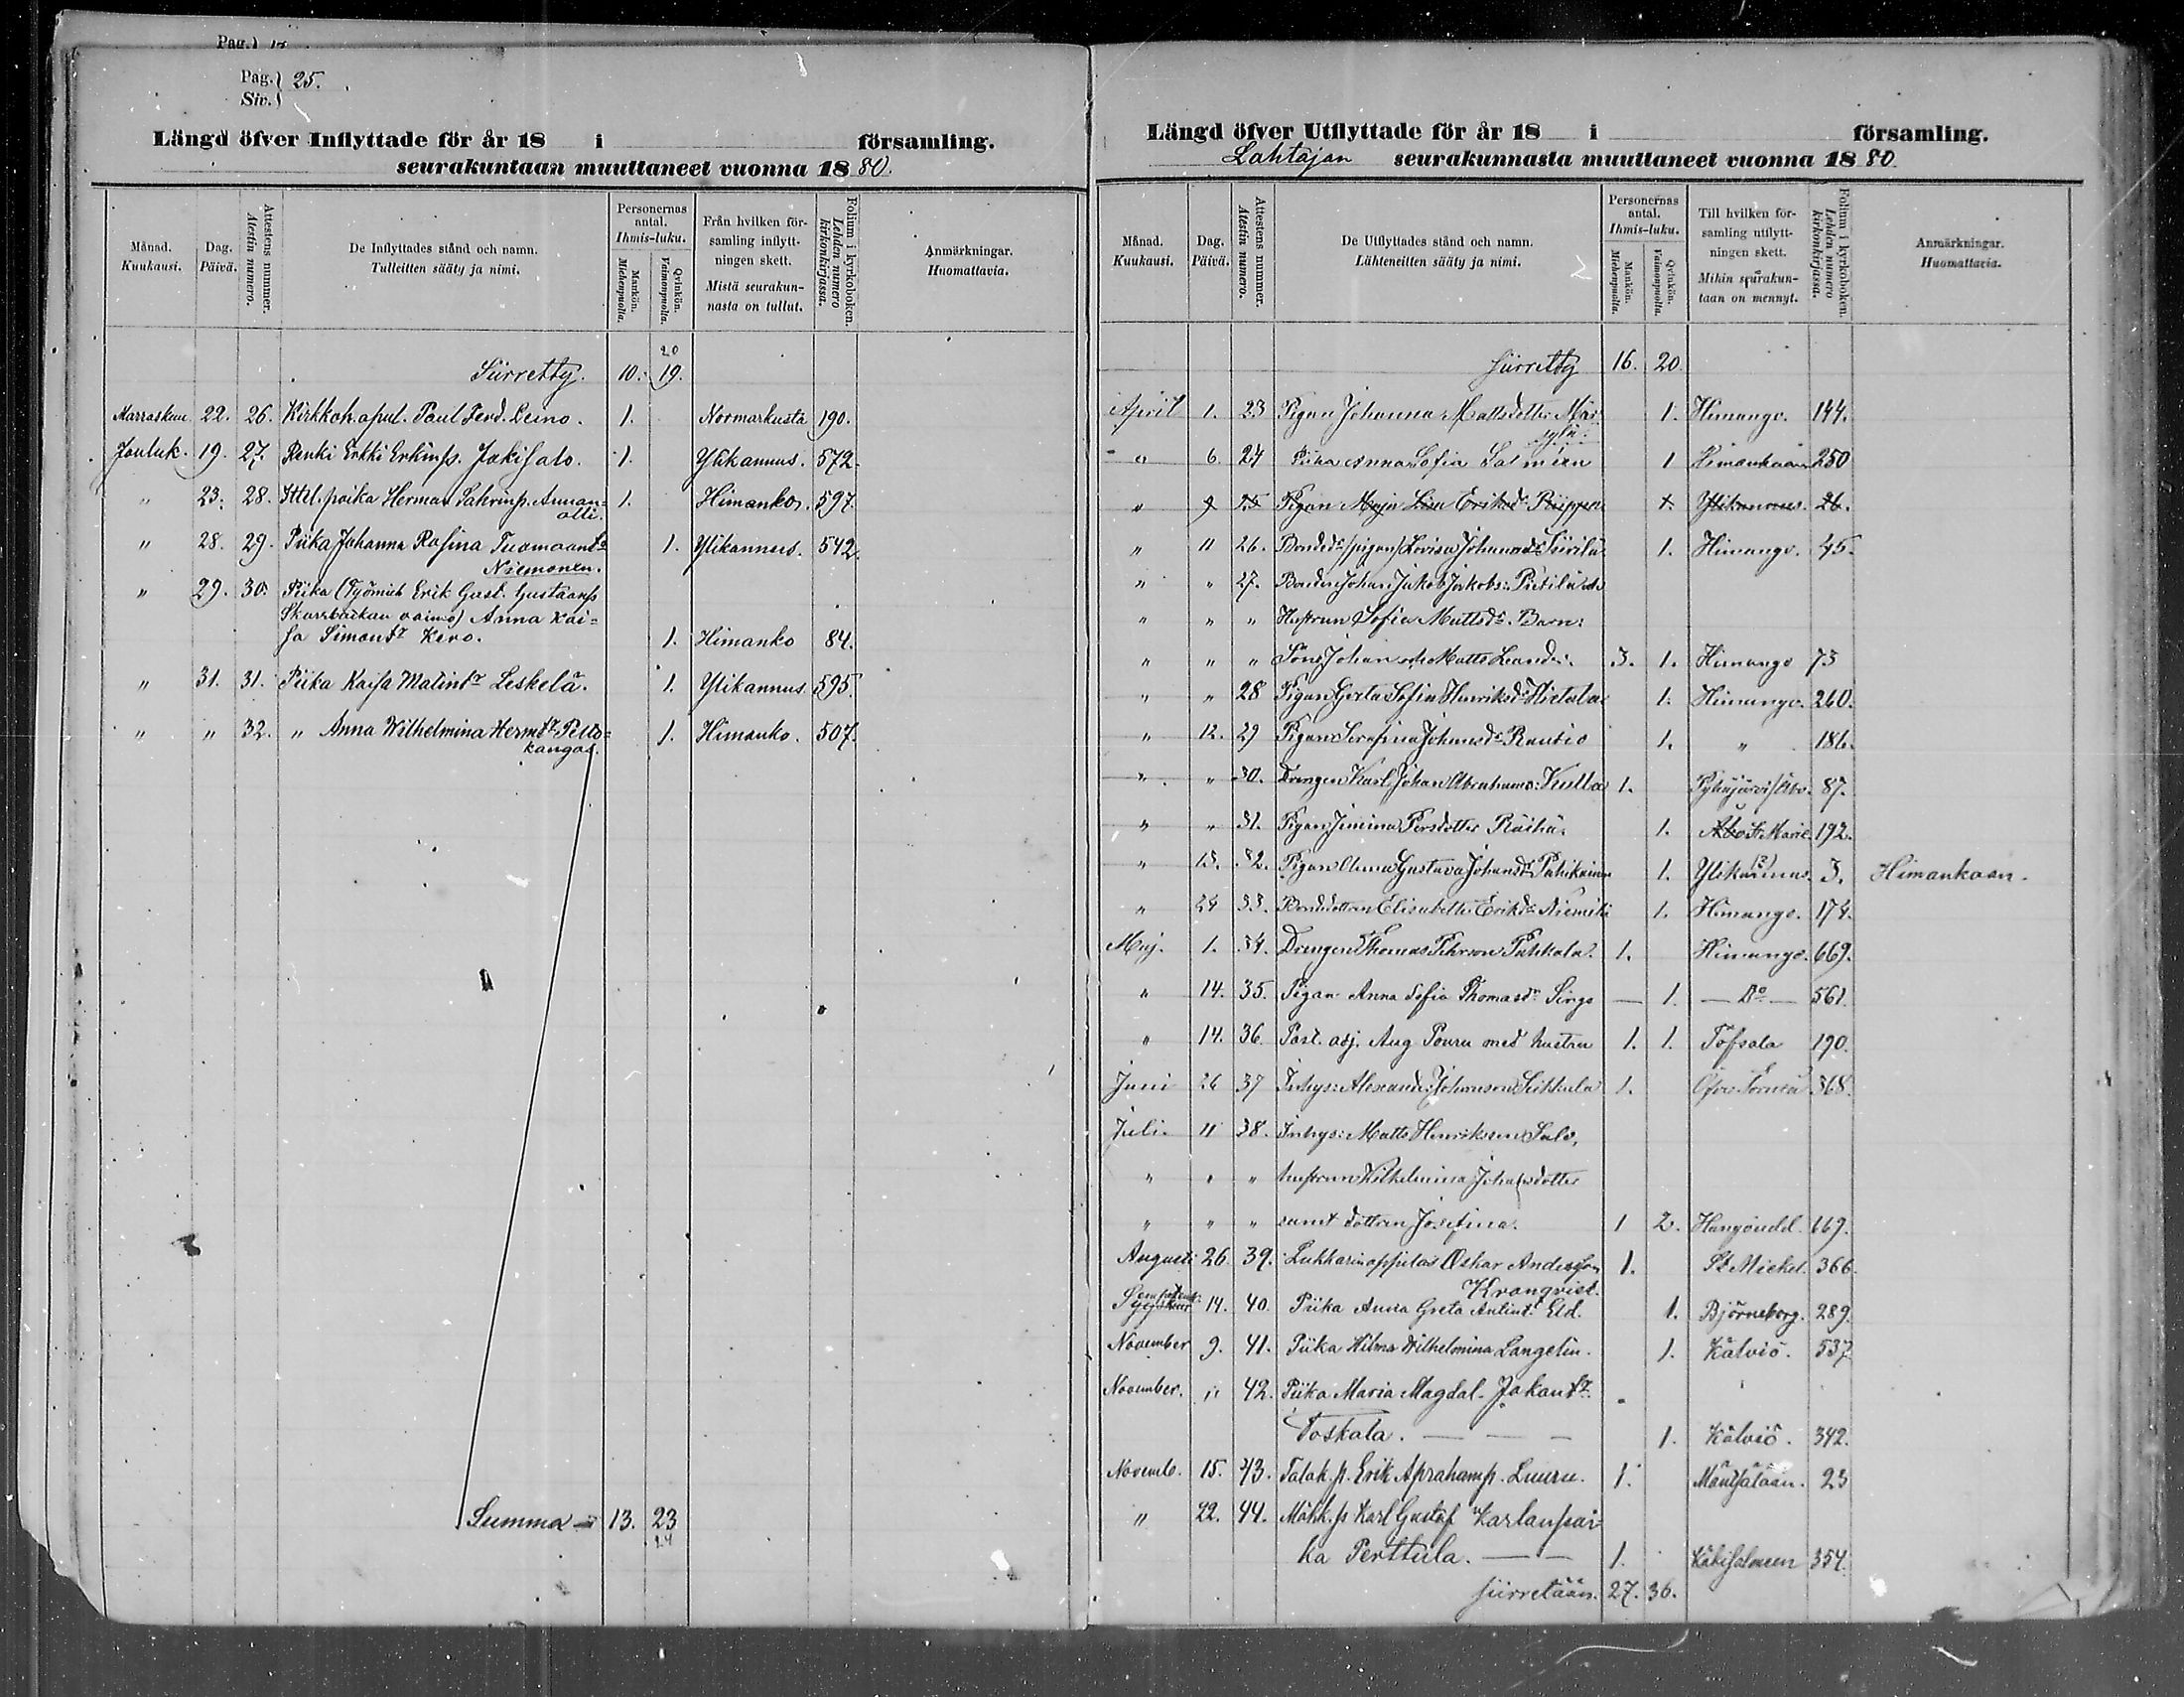 Pag.
Pag. 25.
Siv.
Längd öfver Inflyttade för år 18 i församling.
seurakuntaan muuttaneet vuonna 1880.
Månad. Kuukausi.
Dag. Päivä.
Attestens nummer. Atestin numero.
De Inflyttades stånd och namn. Tulleitten sääty ja nimi.
Personernas antal. Ihmis-luku.
Mankön. Miehenpuolta.
Qvinkön. Vaimonpuolta.
Från hvilken församling inflyttningen skett. Mistä seurakunnasta on tullut.
Folium i kyrkoboken. Lehden numero kirkonkirjassa.
Anmärkningar. Huomattavia.
20
Siirretty. 10. 19.
Marraskuu 22. 26. Kirkkoh. apul. Paul Ferd. Leino. 1. Normarkusta 190.
Jouluk. 19. 27. Renki Erkki Erkinp. Jokisalo. 1. Ylikannus. 572.
" 23. 28. Ittel. poika Herman Sakrinp. Annan= 1. Himanko. 597.
olli.
" 28. 29. Piika Johanna Rosina Tuomaantr 1. Ylikannus. 542.
Niemonen.
" 29. 30. Piika (Työmieh Erik Gust. Gustaanp
Skarsbackan vaimo) Anna Kai=
sa Simontr Kero. 1. Himanko 84.
" 31. 31. Piika Kaisa Matintr Leskelä. 1. Ylikannus. 595.
" " 32. " Anna Wilhelmina Hermtr Pelto= 1. Himanko. 507.
kangas.
Summa 13. 23
24
Längd öfver Utflyttade för år 18 i församling.
Lohtajan seurakunnasta muuttaneet vuonna 1880.
Månad. Kuukausi.
Dag. Päivä.
Attestens nummer. Atestin numero.
De Utflyttades stånd och namn. Lähteneitten sääty ja nimi.
Personernas antal. Ihmis-luku.
Mankön. Miehenpuolta.
Qvinkön. Vaimonpuolta.
Till hvilken församling utflyttningen skett. Mihin seurakuntaan on mennyt.
Folium i kyrkoboken. Lehden numero kirkonkirjassa.
Anmärkningar. Huomattavia.
Siirretty 16. 20.
April 1. 23 Pigan Johanna Mattsdotter Mär= 1. Himango. 144.
sylä.
" 6. 24 Piika Anna Sofia Salmien 1 Himankaan 250
" 9 25 Pigan Maja Lisa Eriksd: Riippa 1. Ylikannus. 26.
" 11 26. Bonded: (pigan) Lovisa Johansd: Siirilä 1. Himango. 45.
" " 27. Bonden Johan Jakob Jakobs: Pietilä och
" " " Hustrun Sofia Mattsd: Barn:
" " " Söns Johan och Matts Leander. 3. 1. Himango 73
" " 28 Pigan Greta Sofia Henriksd: Hietala 1. Himango. 260.
" 12. 29 Pigan Serafina Johansd: Rautio 1. " 186.
" " 30. Drengen Karl Johan Abrahams: Kulla 1. Pyhäjärvi/Åbo. 87.
" " 31. Pigan Jemina Persdotter Räihä. 1. Åbo St Marie. 192.
" 15. 32. Pigan Anna Gustava Johansd: 1. Ylikannus. (?) 3. Himankaan.
" 24 33. Bondedottren Elisabetha Eriksd: Niemelä 1. Himango. 174.
Maj. 1. 34. Drengen Thomas Pehrson Pahkala. 1. Himango. 669.
" 14. 35. Pigan Anna Sofia Thomasdr Singo — 1. — Do — 561.
" 14. 36. Past. adj. Aug Pouru med hustru 1. 1. Töfsala 190.
Juni 26 37 Inhys: Alexander Johansson Sikkula 1. Öfve Torneå 368.
Juli. 11 38. Inhys: Matts Henriksson Salo,
" " " hustrun Wilhelmina Johansdotter
" " " samt dottren Josefina. 1 2. Hangöudd. 669.
Augusti 26. 39. Lukkarin oppilas Oskar Andersson 1. St Michel. 366.
Kronqvist.
Septemb: 14. 40. Piika Anna Greta Antint: Eld. 1. Björneborg. 289.
November 9. 41. Piika Hilma Wilhelmina Langelin. 1. Kälviö. 537
November. " 42. Piika Maria Magdal. Jakantr
Toskala. — — — 1. Kälviö. 342.
Novemb. 15. 43. Talok. p. Erik Aprahamp. Luuru. 1. Mäntsälään. 23
" 22. 44. Mökk. p Karl Gustaf Karlanpoi=
ka Perttula. — — 1. Käkisalmeen 354.
Siirretään. 27. 36.